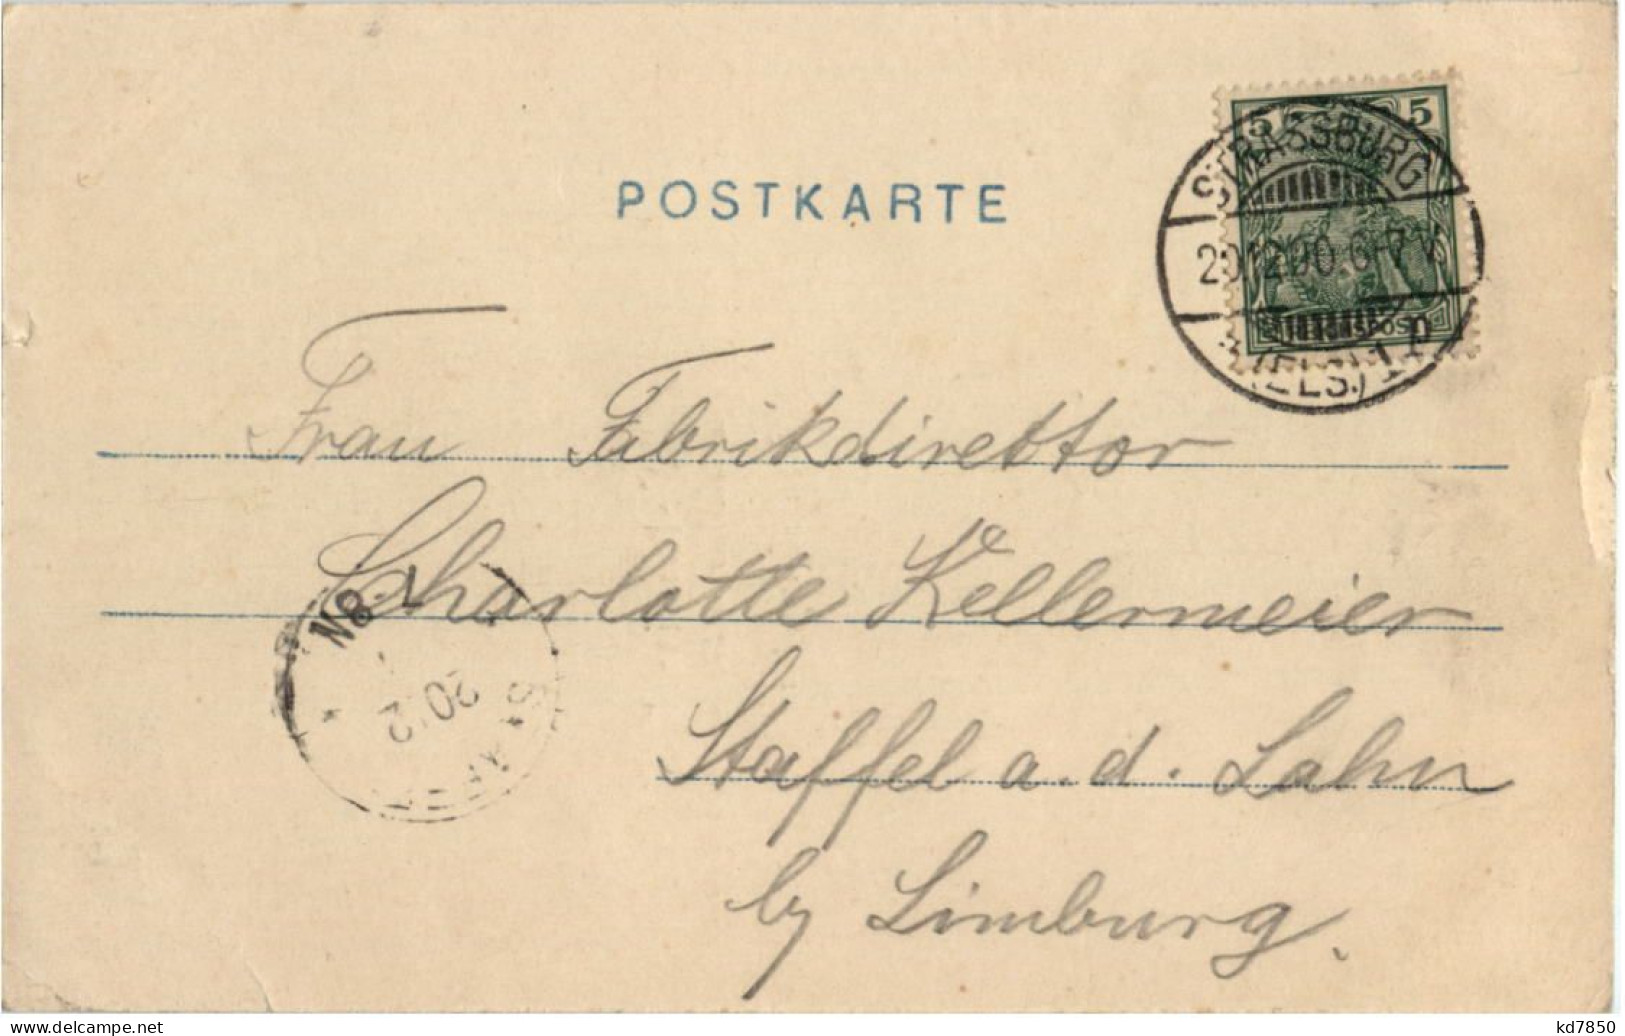 POSTKARTE
5 5
STRASSBURG
20.12.00. 6-7 V.
(ELS.) 1
REICHSPOST
Frau Fabrikdirektor
Charlotte Kellermeier
Staffel a. d. Lahn
by Limburg.
7-8N
20 12
STAFFEL
www.delcampe.net
kd7850